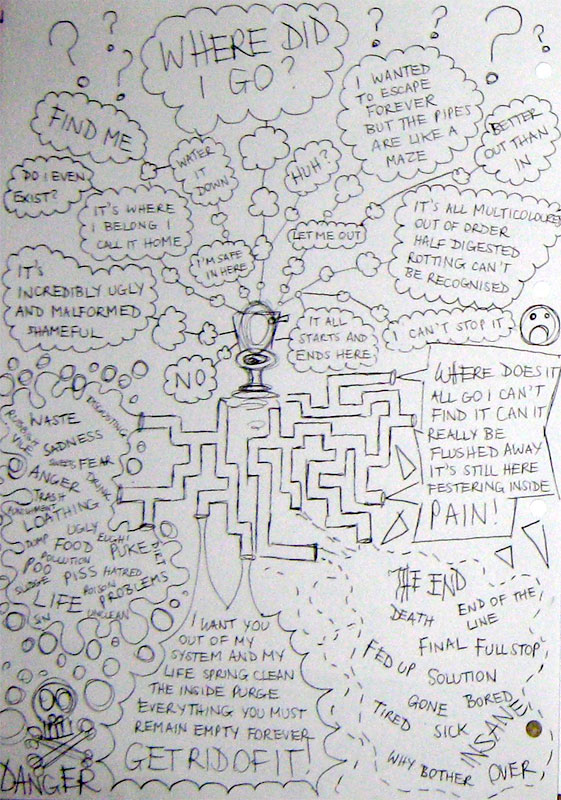 WHERE DID
I GO?
FIND ME
WATER
IT
DOWN
HUH?
I WANTED
TO ESCAPE
FOREVER
BUT THE PIPES
ARE LIKE A
MAZE
BETTER
OUT THAN
IN
DO I EVEN
EXIST?
IT'S WHERE
I BELONG I
CALL IT HOME
I'M SAFE
IN HERE
LET ME OUT
IT'S ALL MULTICOLOURED
OUT OF ORDER
HALF DIGESTED
ROTTING CAN'T
BE RECOGNISED
IT'S
INCREDIBLY UGLY
AND MALFORMED
SHAMEFUL
NO
IT ALL
STARTS AND
ENDS HERE
I CAN'T STOP IT
WHERE DOES IT
ALL GO I CAN'T
FIND IT CAN IT
REALLY BE
FLUSHED AWAY
IT'S STILL HERE
FESTERING INSIDE
PAIN!
DISGUSTING
RUBBISH
WASTE
VILE
SADNESS
FEAR
ANGER
DRINK
TRASH
PUNISHMENT
LOATHING
UGLY
DUMP
FOOD
EUGH!
PUKE
FILTH
POLLUTION
POO
PISS
HATRED
SLUDGE
POISON
PROBLEMS
LIFE
SIN
UNCLEAN
I WANT YOU
OUT OF MY
SYSTEM AND MY
LIFE SPRING CLEAN
THE INSIDE PURGE
EVERYTHING YOU MUST
REMAIN EMPTY FOREVER
GET RID OF IT!
THE END
DEATH
END OF THE
LINE
FINAL
FULLSTOP
FED UP
SOLUTION
GONE
BORED
TIRED
SICK
INSANE
WHY BOTHER
OVER
DANGER